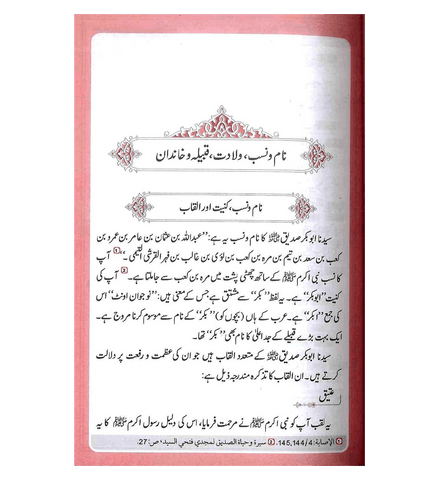 نام ونسب، ولادت، قبیلہ و خاندان
نام ونسب، کنیت اور القاب
سیدنا ابوبکر صدیق ﷜ کا نام ونسب یہ ہے: ”عبداللہ بن عثمان بن عامر بن عمرو بن
کعب بن سعد بن تیم بن مرہ بن کعب بن لؤی بن غالب بن فہر القرشی التیمی۔“ ① آپ
کا نسب نبی اکرم ﷺ کے ساتھ چھٹی پشت میں مرہ بن کعب سے جا ملتا ہے۔ ② آپ کی
کنیت ”ابوبکر“ ہے۔ یہ لفظ ”بکر“ سے مشتق ہے جس کے معنی ہیں: ”نوجوان اونٹ“ اس
کی جمع ”ابکر“ ہے۔ عرب کے ہاں (بچوں کو) ”بکر“ کے نام سے موسوم کرنا مروج ہے۔
ایک بہت بڑے قبیلے کے جد اعلیٰ کا نام بھی ”بکر“ تھا۔
سیدنا ابوبکر صدیق ﷜ کے متعدد القاب ہیں جو ان کی عظمت و رفعت پر دلالت
کرتے ہیں۔ ان القاب کا تذکرہ مندرجہ ذیل ہے:
عتیق
یہ لقب آپ کو نبی اکرم ﷺ نے مرحمت فرمایا، اس کی دلیل رسول اکرم ﷺ کا یہ
① الإصابة: 4/145,144. ② سيرة وحياة الصديق لمجدي فتحي السيد، ص: 27.